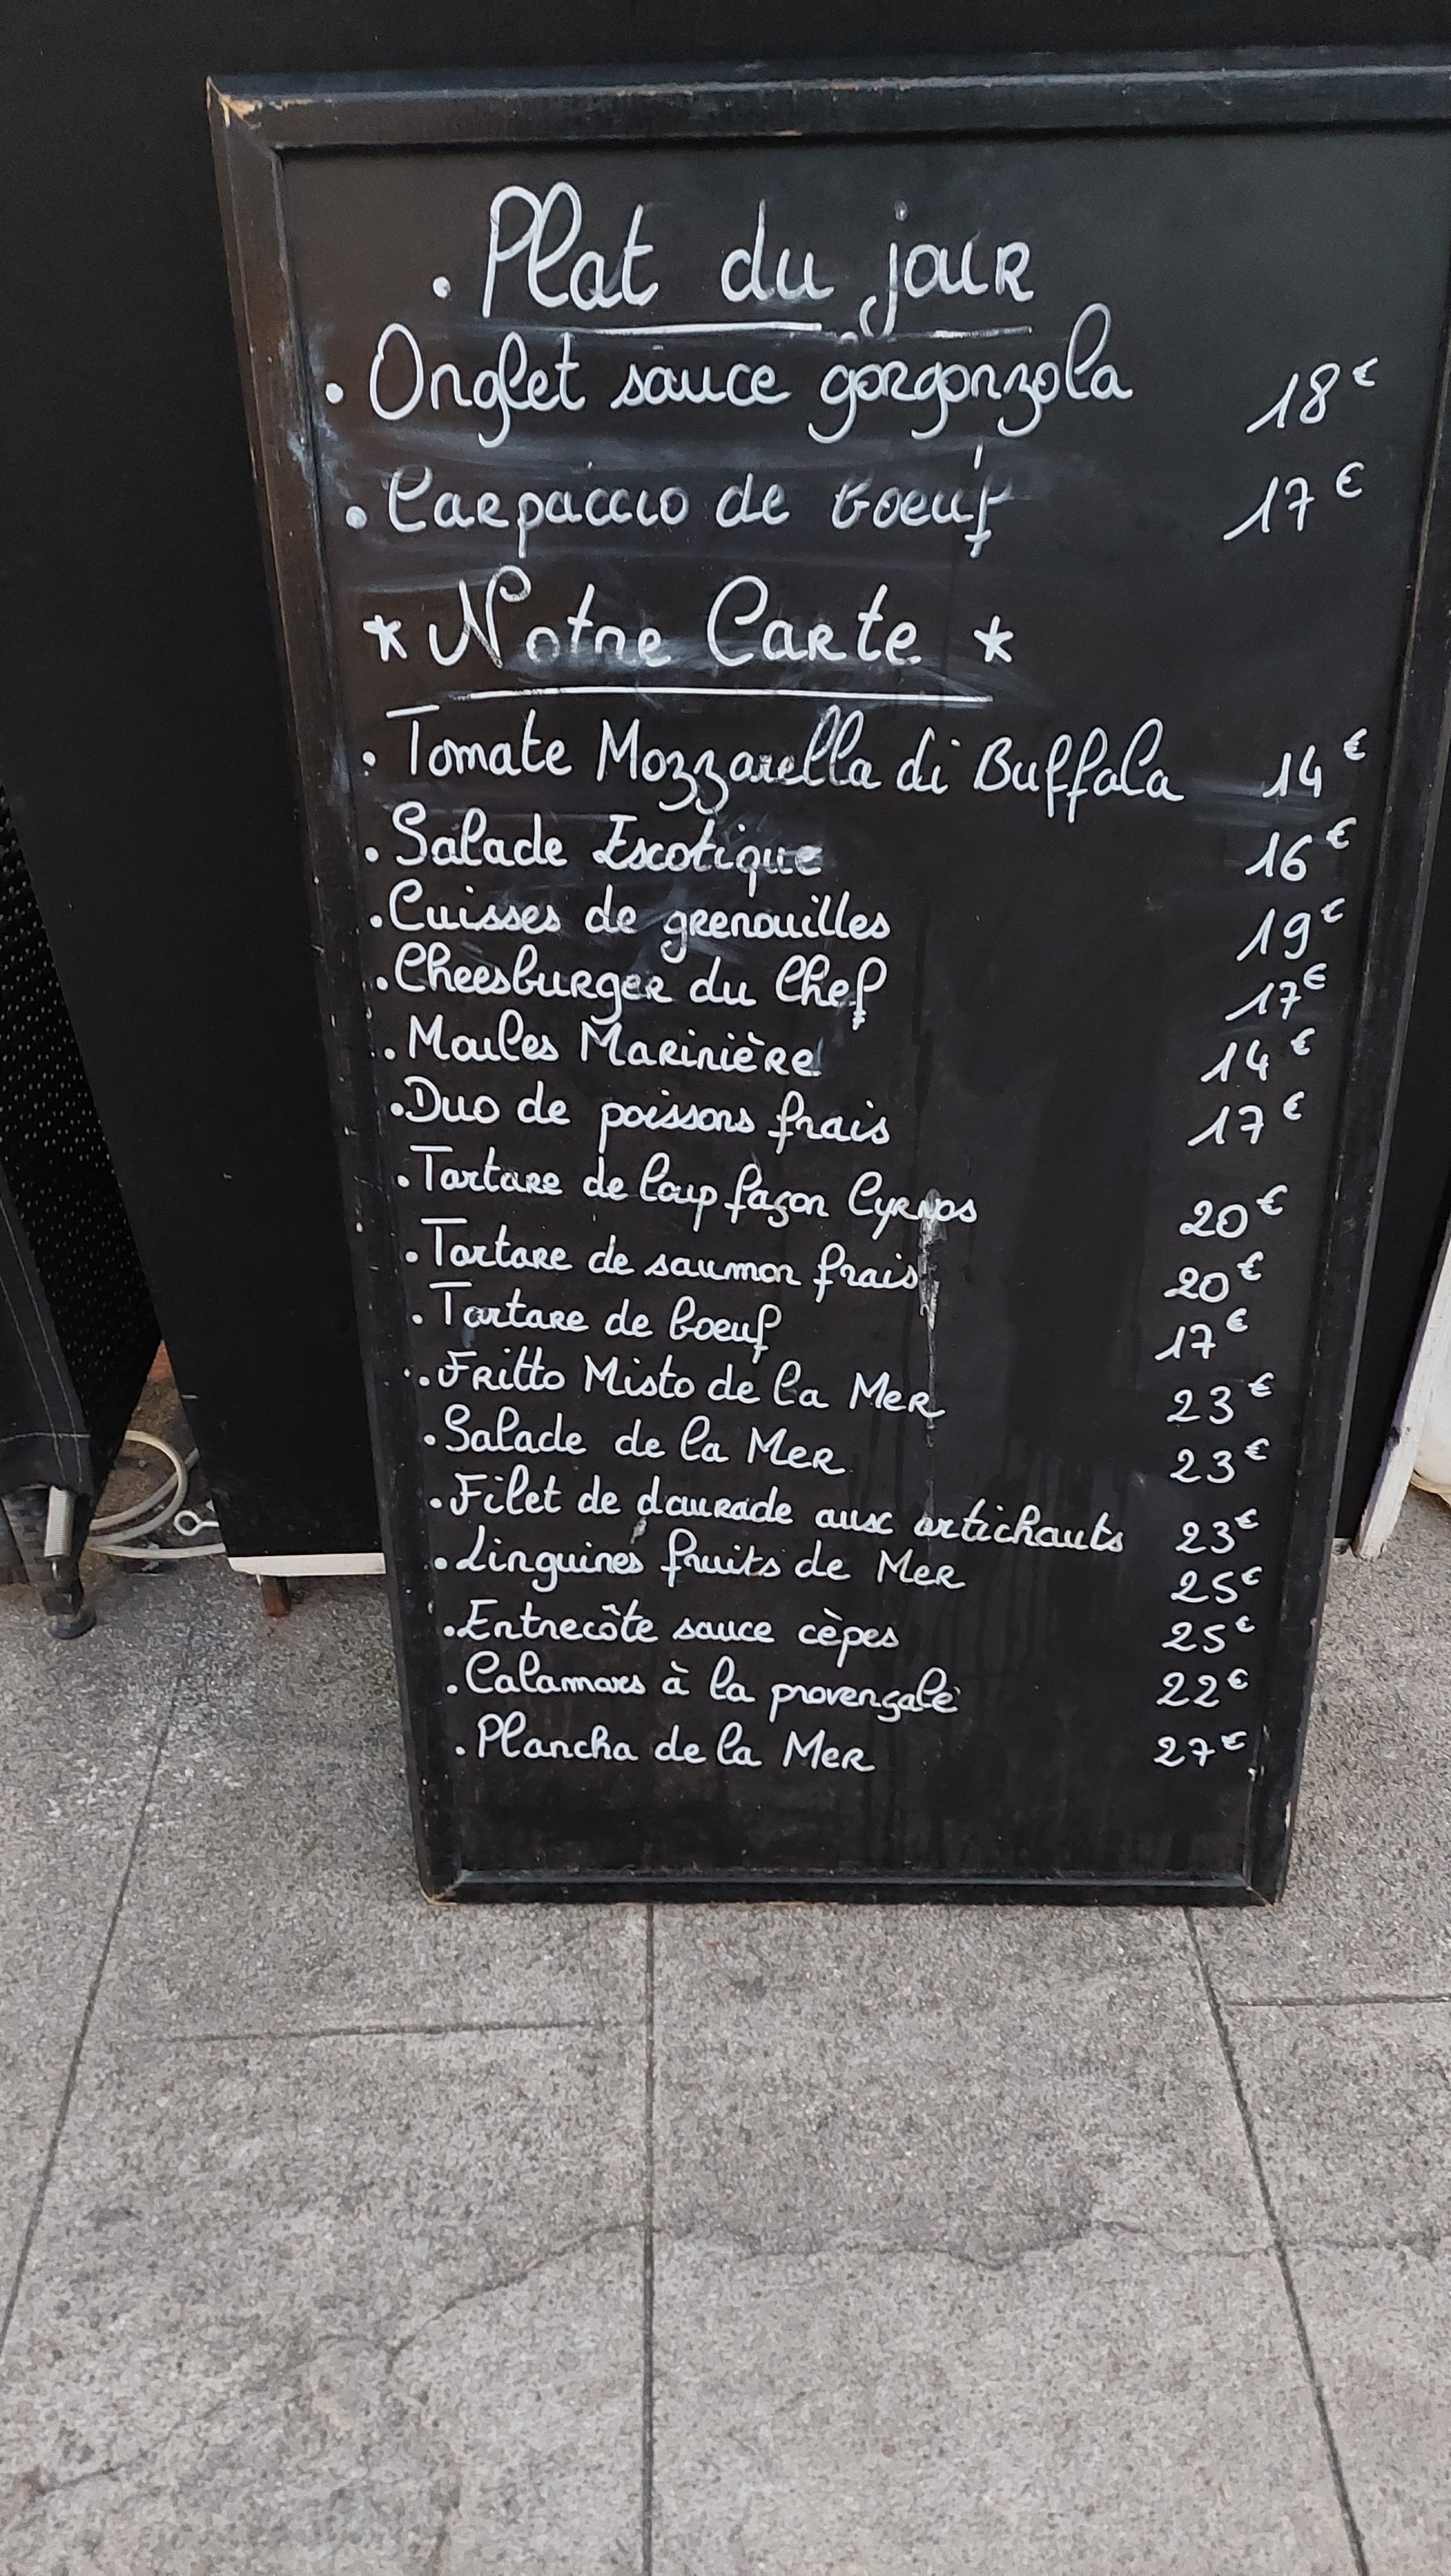 . Plat du jour
. Onglet sauce gorgonzola 18€
. Carpaccio de boeuf 17€
* Notre Carte *
. Tomate Mozzarella di Buffala 14€
. Salade Exotique 16€
. Cuisses de grenouilles 19€
. Cheesburger du Chef 17€
. Moules Marinière 14€
. Duo de poissons frais 17€
. Tartare de loup façon Cyrnos 20€
. Tartare de saumon frais 20€
. Tartare de boeuf 17€
. Fritto Misto de la Mer 23€
. Salade de la Mer 23€
. Filet de daurade aux artichauts 23€
. Linguines fruits de Mer 25€
. Entrecôte sauce cèpes 25€
. Calamars à la provençale 22€
. Plancha de la Mer 27€